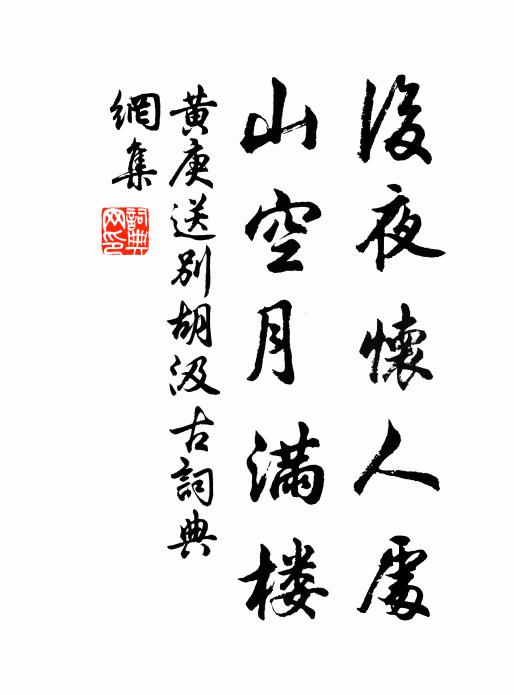 後夜懷人處
山空月滿楼
黄庚送别胡汲古詞典
網集
詞典
网印